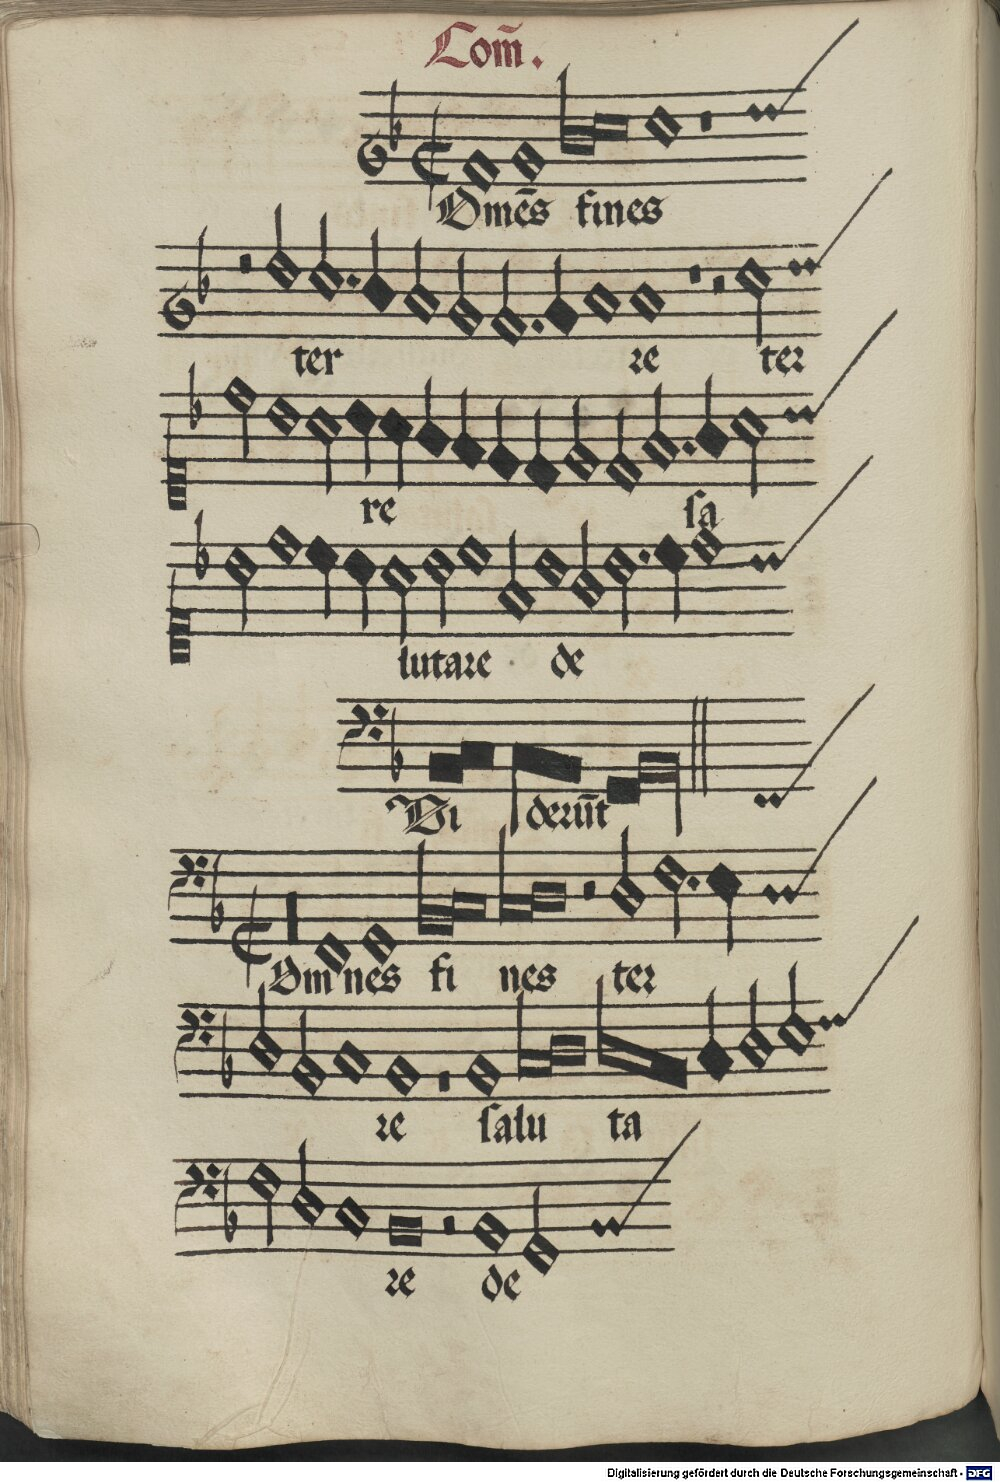 Com̄.
Omēs fines
ter re ter
re sa
lutare de
Vi derūt
Om nes fi nes ter
re salu ta
re de
Digitalisierung gefördert durch die Deutsche Forschungsgemeinschaft - DFG